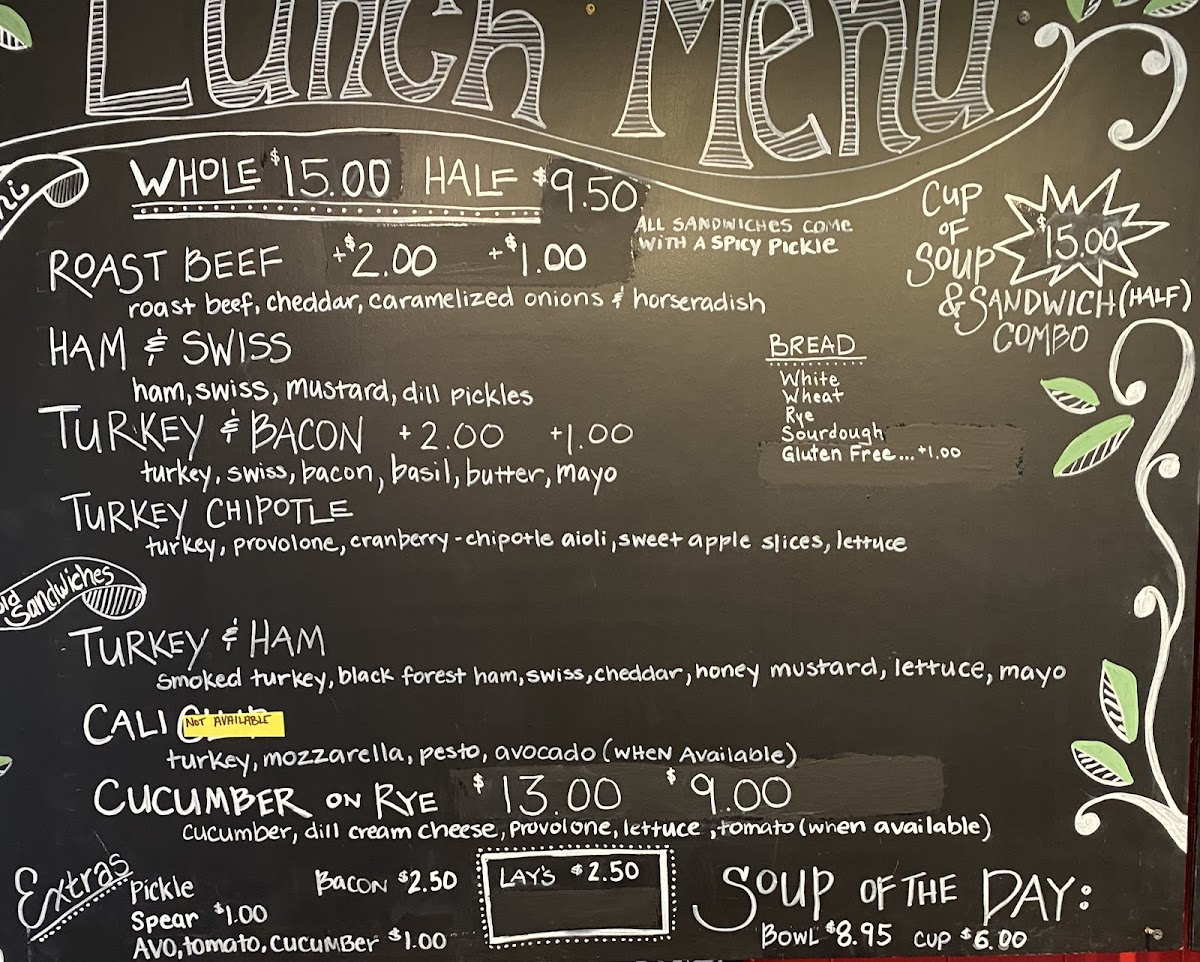 Lunch Menu
WHOLE $15.00 HALF $9.50
ALL SANDWICHES COME
WITH A SPICY PICKLE
CUP
OF
SOUP
$15.00
& SANDWICH (HALF)
COMBO
ROAST BEEF +$2.00 +$1.00
roast beef, cheddar, caramelized onions & horseradish
HAM & SWISS
ham, swiss, mustard, dill pickles
BREAD
White
Wheat
Rye
Sourdough
Gluten Free...+1.00
TURKEY & BACON +2.00 +1.00
turkey, swiss, bacon, basil, butter, mayo
TURKEY CHIPOTLE
turkey, provolone, cranberry-chipotle aioli, sweet apple slices, lettuce
Sandwiches
TURKEY & HAM
smoked turkey, black forest ham, swiss, cheddar, honey mustard, lettuce, mayo
CALI
NOT AVAILABLE
turkey, mozzarella, pesto, avocado (WHEN Available)
CUCUMBER ON RYE $13.00 $9.00
cucumber, dill cream cheese, provolone, lettuce, tomato (when available)
Extras
Pickle
Spear $1.00
AVO, tomato, CUCUMBER $1.00
BACON $2.50
LAY'S $2.50
SOUP OF THE DAY:
BOWL $8.95 CUP $6.00